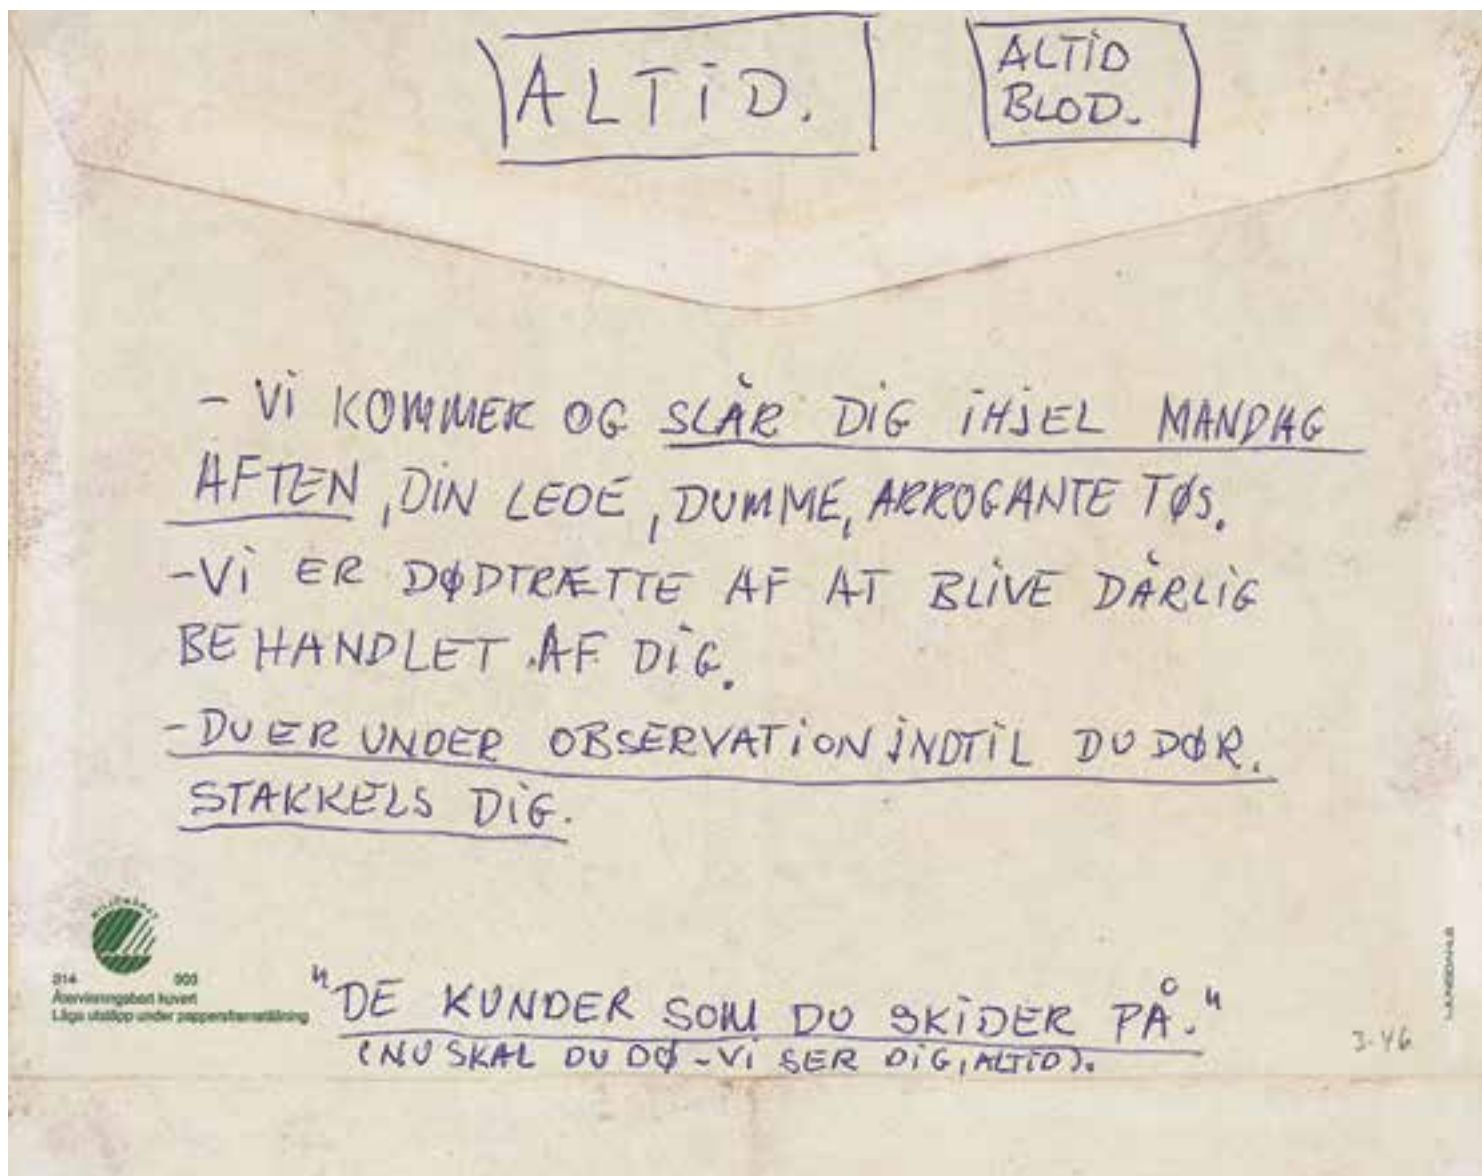 ALTiD.
ALTiD
BLOD.
- Vi KOMMER OG SLÅR DiG iHJEL MANDAG
AFTEN, DiN LEDE, DUMME, ARROGANTE TØS.
- Vi ER DØDTRÆTTE AF AT BLiVE DÅRLiG
BEHANDLET AF DiG.
- DU ER UNDER OBSERVATiON iNDTiL DU DØR.
STAKKELS DiG.
MILJÖMÄRKT
314 303
Återvinningsbart kuvert
Låga utsläpp under pappersframställning
"DE KUNDER SOM DU SKiDER PÅ."
(NU SKAL DU DØ - Vi SER DiG, ALTiD).
3-46